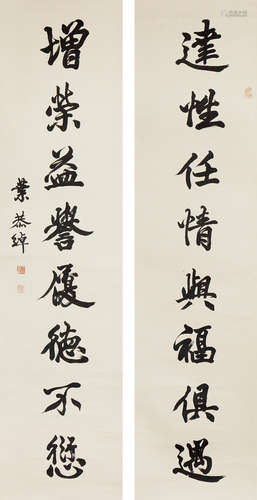 達性任情與福俱遇
增榮益譽履德不愆
葉恭綽